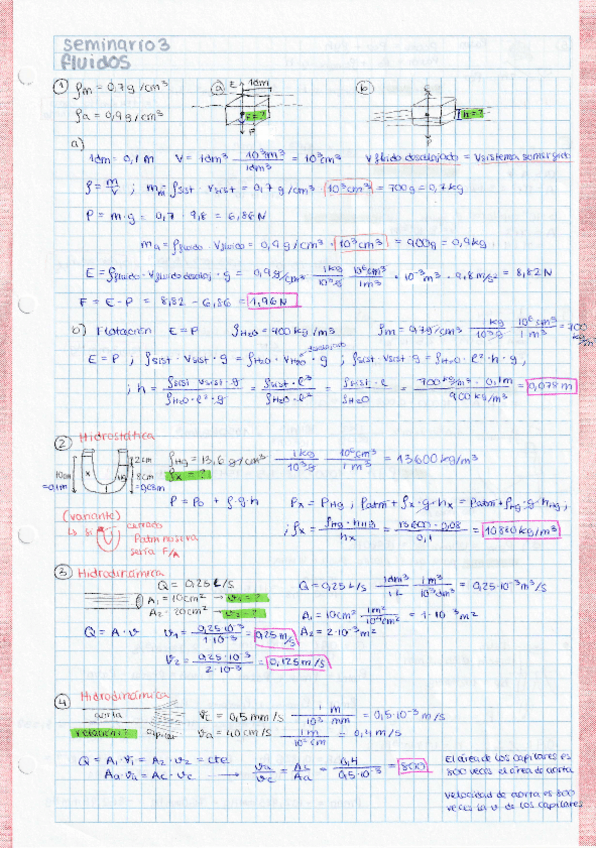 seminario 3
fluidos
① ρm = 0,7 g/cm³ ⓐ E 1dm F=? P ⓑ E h=? P
ρa = 0,9 g/cm³
a)
1dm = 0,1 m V = 1dm³ · 10³cm³/1dm³ = 10³cm³ V fluido desalojado = V sistema sumergido
ρ = m/V ; mm = ρsist · Vsist = 0,7 g/cm³ · 10³cm³ = 700g = 0,7 kg
P = m·g = 0,7 · 9,8 = 6,86 N
ma = ρfluido · Vfluido = 0,9 g/cm³ · 10³cm³ = 900g = 0,9kg
E = ρfluido · Vfluido desaloj · g = 0,9 g/cm³ · 1kg/10³g · 10⁶cm³/1m³ · 10⁻³m³ · 9,8 m/s² = 8,82N
F = E - P = 8,82 - 6,86 = 1,96 N
b) Flotación E = P ρH₂O = 900 kg/m³ ρm = 0,7g/cm³ · kg/10³g · 10⁶cm³/1m³ = 700 kg/m³
E = P ; ρsist · Vsist · g = ρH₂O · VH₂O · g ; ρsist · Vsist · g = ρH₂O · l² · h · g ,
; h = ρsist · Vsist · g/ρH₂O · l² · g = ρsist · l³/ρH₂O · l² = ρsist · l/ρH₂O = 700 kg/m³ · 0,1m/900 kg/m³ = 0,078 m
② Hidrostática
10cm =0,1m x Hg 2cm 8cm =0,08m ρHg = 13,6 g/cm³ · 1kg/10³g · 10⁶cm³/1m³ = 13600 kg/m³
ρx = ?
P = P₀ + ρ·g·h Px = PHg ; Patm + ρx·g·hx = Patm + ρHg·g·hHg ;
(variante)
↳ Si cerrado
Patm no sería
sería F/A
; ρx = ρHg · hHg/hx = 13600 · 0,08/0,1 = 10880 kg/m³
③ Hidrodinámica
Q = 0,25 L/s Q = 0,25 L/s · 1dm³/1L · 1m³/10³dm³ = 0,25·10⁻³m³/s
A₁ = 10cm² → v₁ = ?
A₂ = 20cm² → v₂ = ? A₁ = 10cm² · 1m²/10⁴cm² = 1·10⁻³m²
Q = A·v v₁ = 0,25·10⁻³/1·10⁻³ = 0,25 m/s A₂ = 2·10⁻³m²
v₂ = 0,25·10⁻³/2·10⁻³ = 0,125 m/s
④ Hidrodinámica
aorta vc = 0,5 mm/s · 1 m/10³ mm = 0,5·10⁻³ m/s
capilar va = 40 cm/s · 1m/10² cm = 0,4 m/s
Q = A₁·v₁ = A₂·v₂ = cte
Aa·va = Ac·vc → va/vc = Ac/Aa = 0,4/0,5·10⁻³ = 800
El área de los capilares es
800 veces el área de aorta
velocidad de aorta es 800
veces la v de los capilares